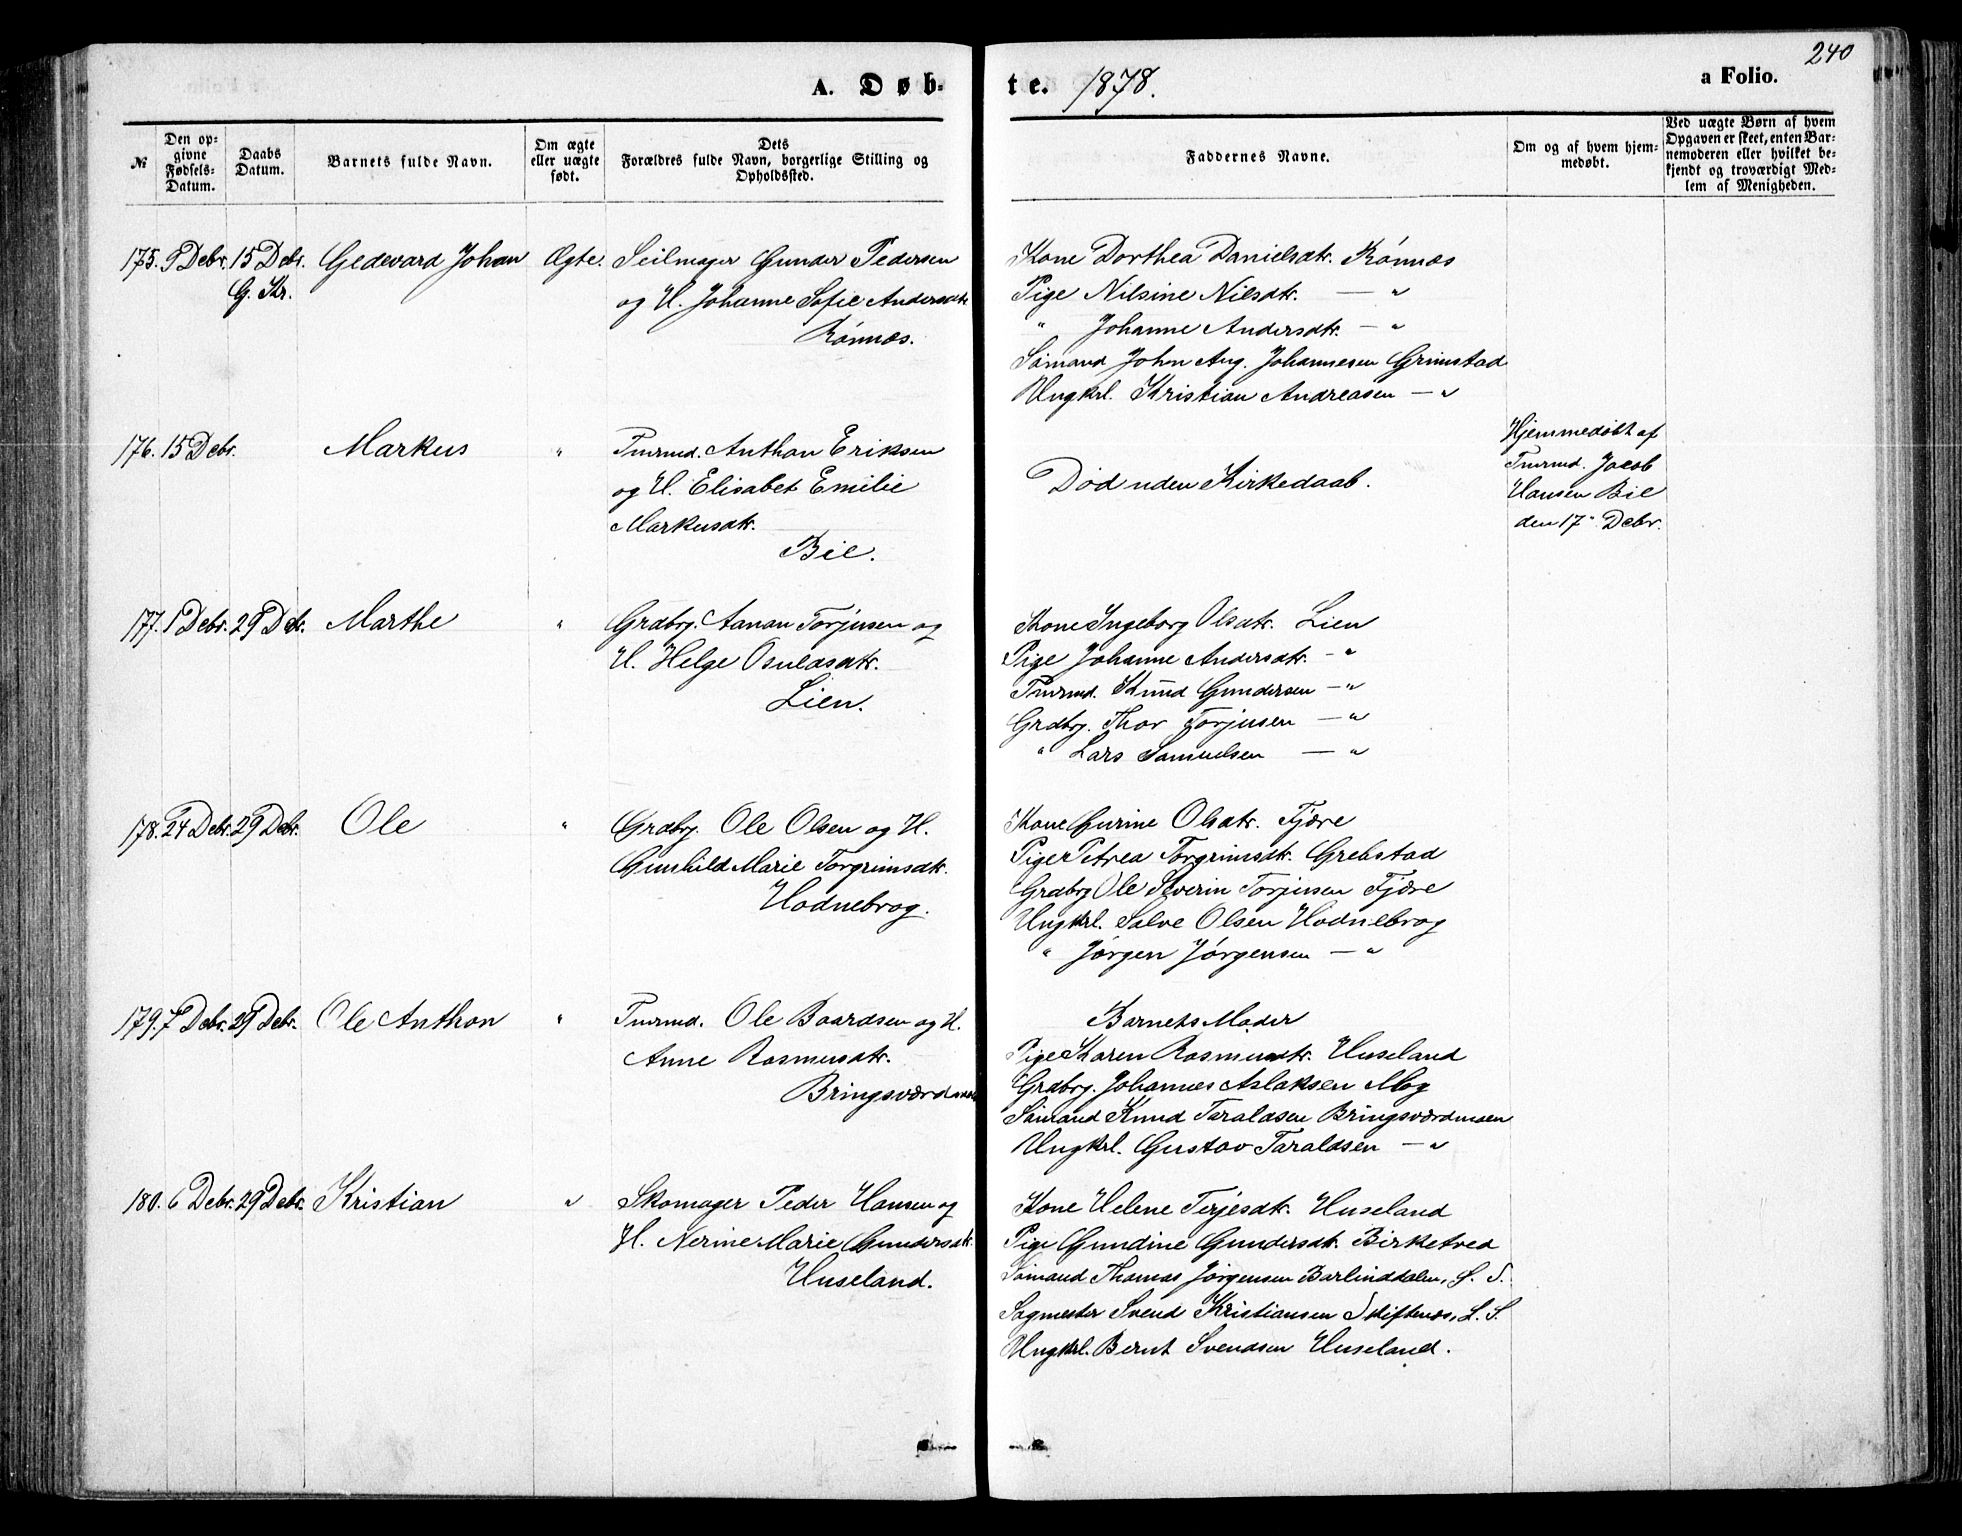 240
A. Døb-
te. 1878.
a Folio.
№
Den op-
givne
Fødsels-
Datum.
Daabs
Datum.
Barnets fulde Navn.
Om ægte
eller uægte
født.
Dets
Forældres fulde Navn, borgerlige Stilling og
Opholdssted.
Faddernes Navne.
Om og af hvem hjem-
medøbt.
Ved uægte Børn af hvem
Opgaven er skeet, enten Bar-
nemoderen eller hvilket be-
kjendt og troværdigt Med-
lem af Menigheden.
175. Debr. 15 Debr. Gedevard Johan Ægte. Seilmager Gunder Pedersen
G. Kr.
og H. Johanne Sofie Andersdtr
Rønnæs.
Kone Dorthea Danielsdtr. Rønnæs
Pige Nilsine Nilsdtr. — "
" Johanne Andersdtr. — "
Sømand John Aug. Johannesen Grimstad
Ungkrl. Kristian Andreasen — "
176. 15 Debr. Markus " Tmrmd. Anthon Eriksen
og H. Elisabet Emilie
Markusdtr.
Bie.
Død uden Kirkedaab.
Hjemmedøbt af
Tmrmd. Jacob
Hansen Bie
den 17" Debr.
177. 1 Debr. 29 Debr. Marthe " Grdbrg. Aanon Torjusen og
H. Helge Osuldsdtr.
Lien.
Kone Ingeborg Olsdtr. Lien
Pige Johanne Andersdtr. — "
Tmrmd. Knud Gundersen — "
Grdbrg. Thor Torjusen — "
" Lars Samuelsen — "
178. 24 Debr. 29 Debr. Ole " Grdbrg. Ole Olsen og H.
Gunhild Marie Torgrimsdtr.
Hodnebrog.
Kone Gurine Olsdtr. Fjære
Pige Petrea Torgrimsdtr. Grebstad
Grdbrg Ole Severin Torjusen Fjære
Ungkrl. Salve Olsen Hodnebrog
" Jørgen Jørgensen — "
179. 7 Debr. 29 Debr. Ole Anthon " Tmrmd. Ole Baardsen og H.
Anne Rasmusdtr.
Bringsværdmoen
Barnets Moder
Pige Karen Rasmusdtr. Huseland
Grdbrg. Johannes Aslaksen Moy
Sømand Knud Taraldsen Bringsværdmoen
Ungkrl. Gustav Taraldsen — "
180. 6 Debr. 29 Debr. Kristian " Skomager Peder Hansen og
H. Nerine Marie Gundersdtr.
Huseland.
Kone Helene Terjesdtr. Huseland
Pige Gundine Gundersdtr. Birketved
Sømand Thomas Jørgensen Barlinddalen, L. S.
Sagmester Svend Kristiansen Skiftenæs, L. S.
Ungkrl. Bernt Svendsen Huseland.